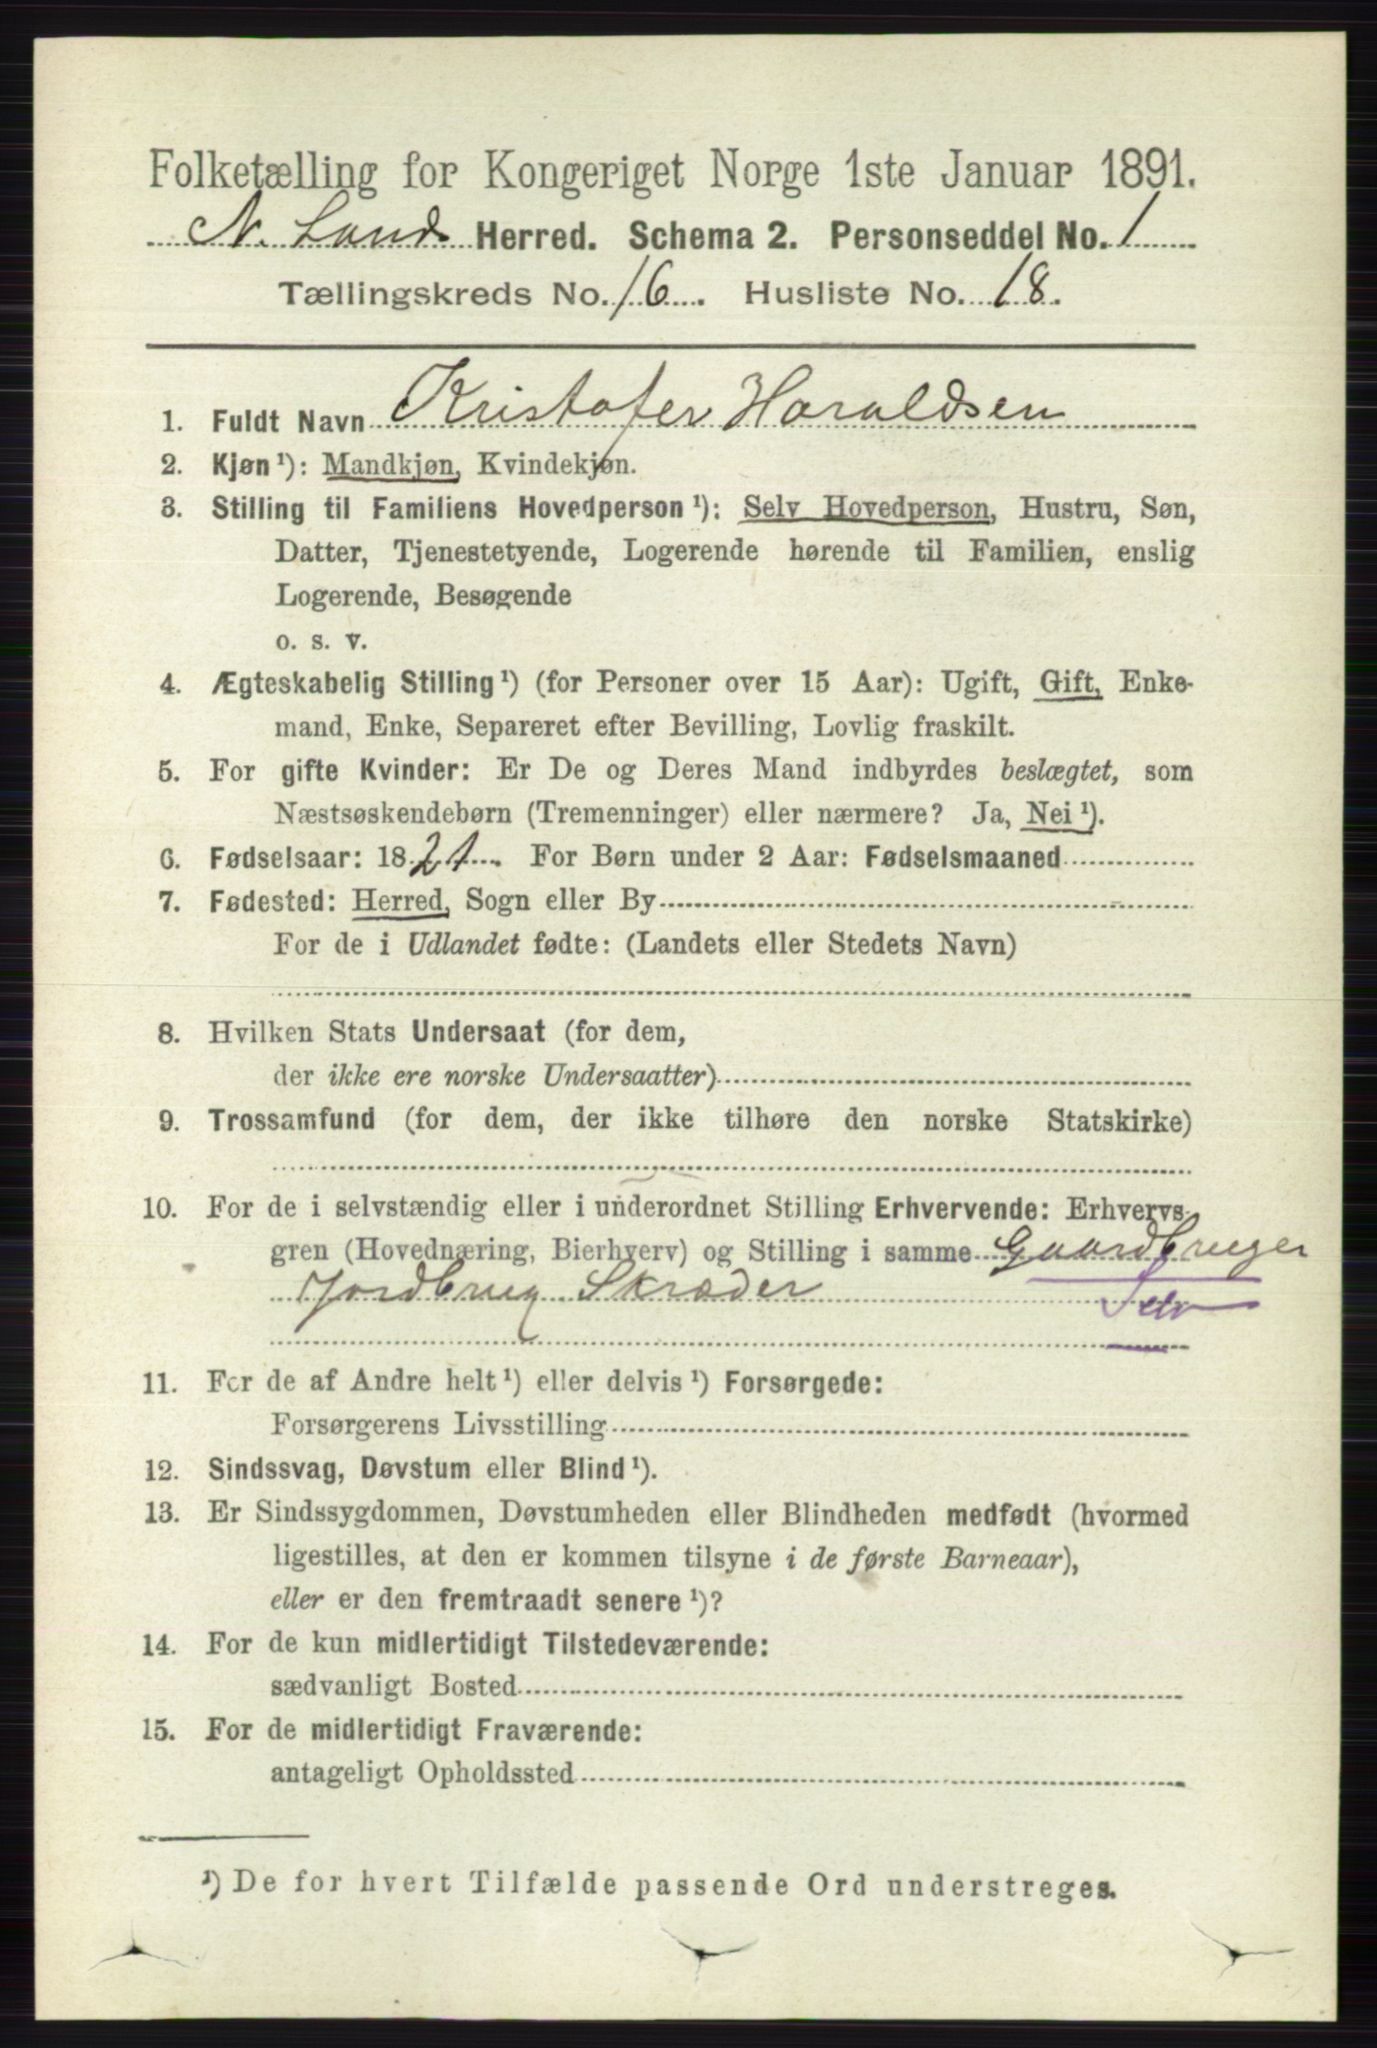 Folketælling for Kongeriget Norge 1ste Januar 1891.
N. Land Herred. Schema 2. Personseddel No. 1
Tællingskreds No. 16. Husliste No. 18.
1. Fuldt Navn Kristofer Haraldsen
2. Kjøn¹): Mandkjøn, Kvindekjøn.
3. Stilling til Familiens Hovedperson¹): Selv Hovedperson, Hustru, Søn,
Datter, Tjenestetyende, Logerende hørende til Familien, enslig
Logerende, Besøgende
o. s. v.
4. Ægteskabelig Stilling¹) (for Personer over 15 Aar): Ugift, Gift, Enke-
mand, Enke, Separeret efter Bevilling, Lovlig fraskilt.
5. For gifte Kvinder: Er De og Deres Mand indbyrdes beslægtet, som
Næstsøskendebørn (Tremenninger) eller nærmere? Ja, Nei¹).
6. Fødselsaar: 1821. For Børn under 2 Aar: Fødselsmaaned
7. Fødested: Herred, Sogn eller By
For de i Udlandet fødte: (Landets eller Stedets Navn)
8. Hvilken Stats Undersaat (for dem,
der ikke ere norske Undersaatter)
9. Trossamfund (for dem, der ikke tilhøre den norske Statskirke)
10. For de i selvstændig eller i underordnet Stilling Erhvervende: Erhvervs-
gren (Hovednæring, Bierhverv) og Stilling i samme Gaardbruger
Jordbrug Skræder Selv
11. For de af Andre helt¹) eller delvis¹) Forsørgede:
Forsørgerens Livsstilling
12. Sindssvag, Døvstum eller Blind¹).
13. Er Sindssygdommen, Døvstumheden eller Blindheden medfødt (hvormed
ligestilles, at den er kommen tilsyne i de første Barneaar),
eller er den fremtraadt senere¹)?
14. For de kun midlertidigt Tilstedeværende:
sædvanligt Bosted
15. For de midlertidigt Fraværende:
antageligt Opholdssted
¹) De for hvert Tilfælde passende Ord understreges.